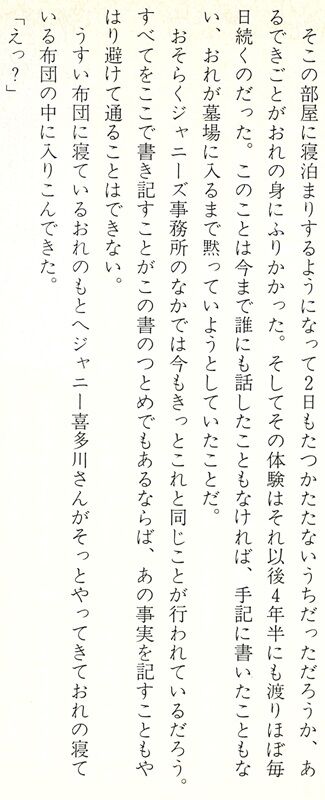 そこの部屋に寝泊まりするようになって2日もたつかたたないうちだっただろうか、あ
るできごとがおれの身にふりかかった。そしてその体験はそれ以後4年半にも渡りほぼ毎
日続くのだった。このことは今まで誰にも話したこともなければ、手記に書いたこともな
い、おれが墓場に入るまで黙っていようとしていたことだ。
おそらくジャニーズ事務所のなかでは今もきっとこれと同じことが行われているだろう。
すべてをここで書き記すことがこの書のつとめでもあるならば、あの事実を記すこともや
はり避けて通ることはできない。
うすい布団に寝ているおれのもとへジャニー喜多川さんがそっとやってきておれの寝て
いる布団の中に入りこんできた。
「えっ?」